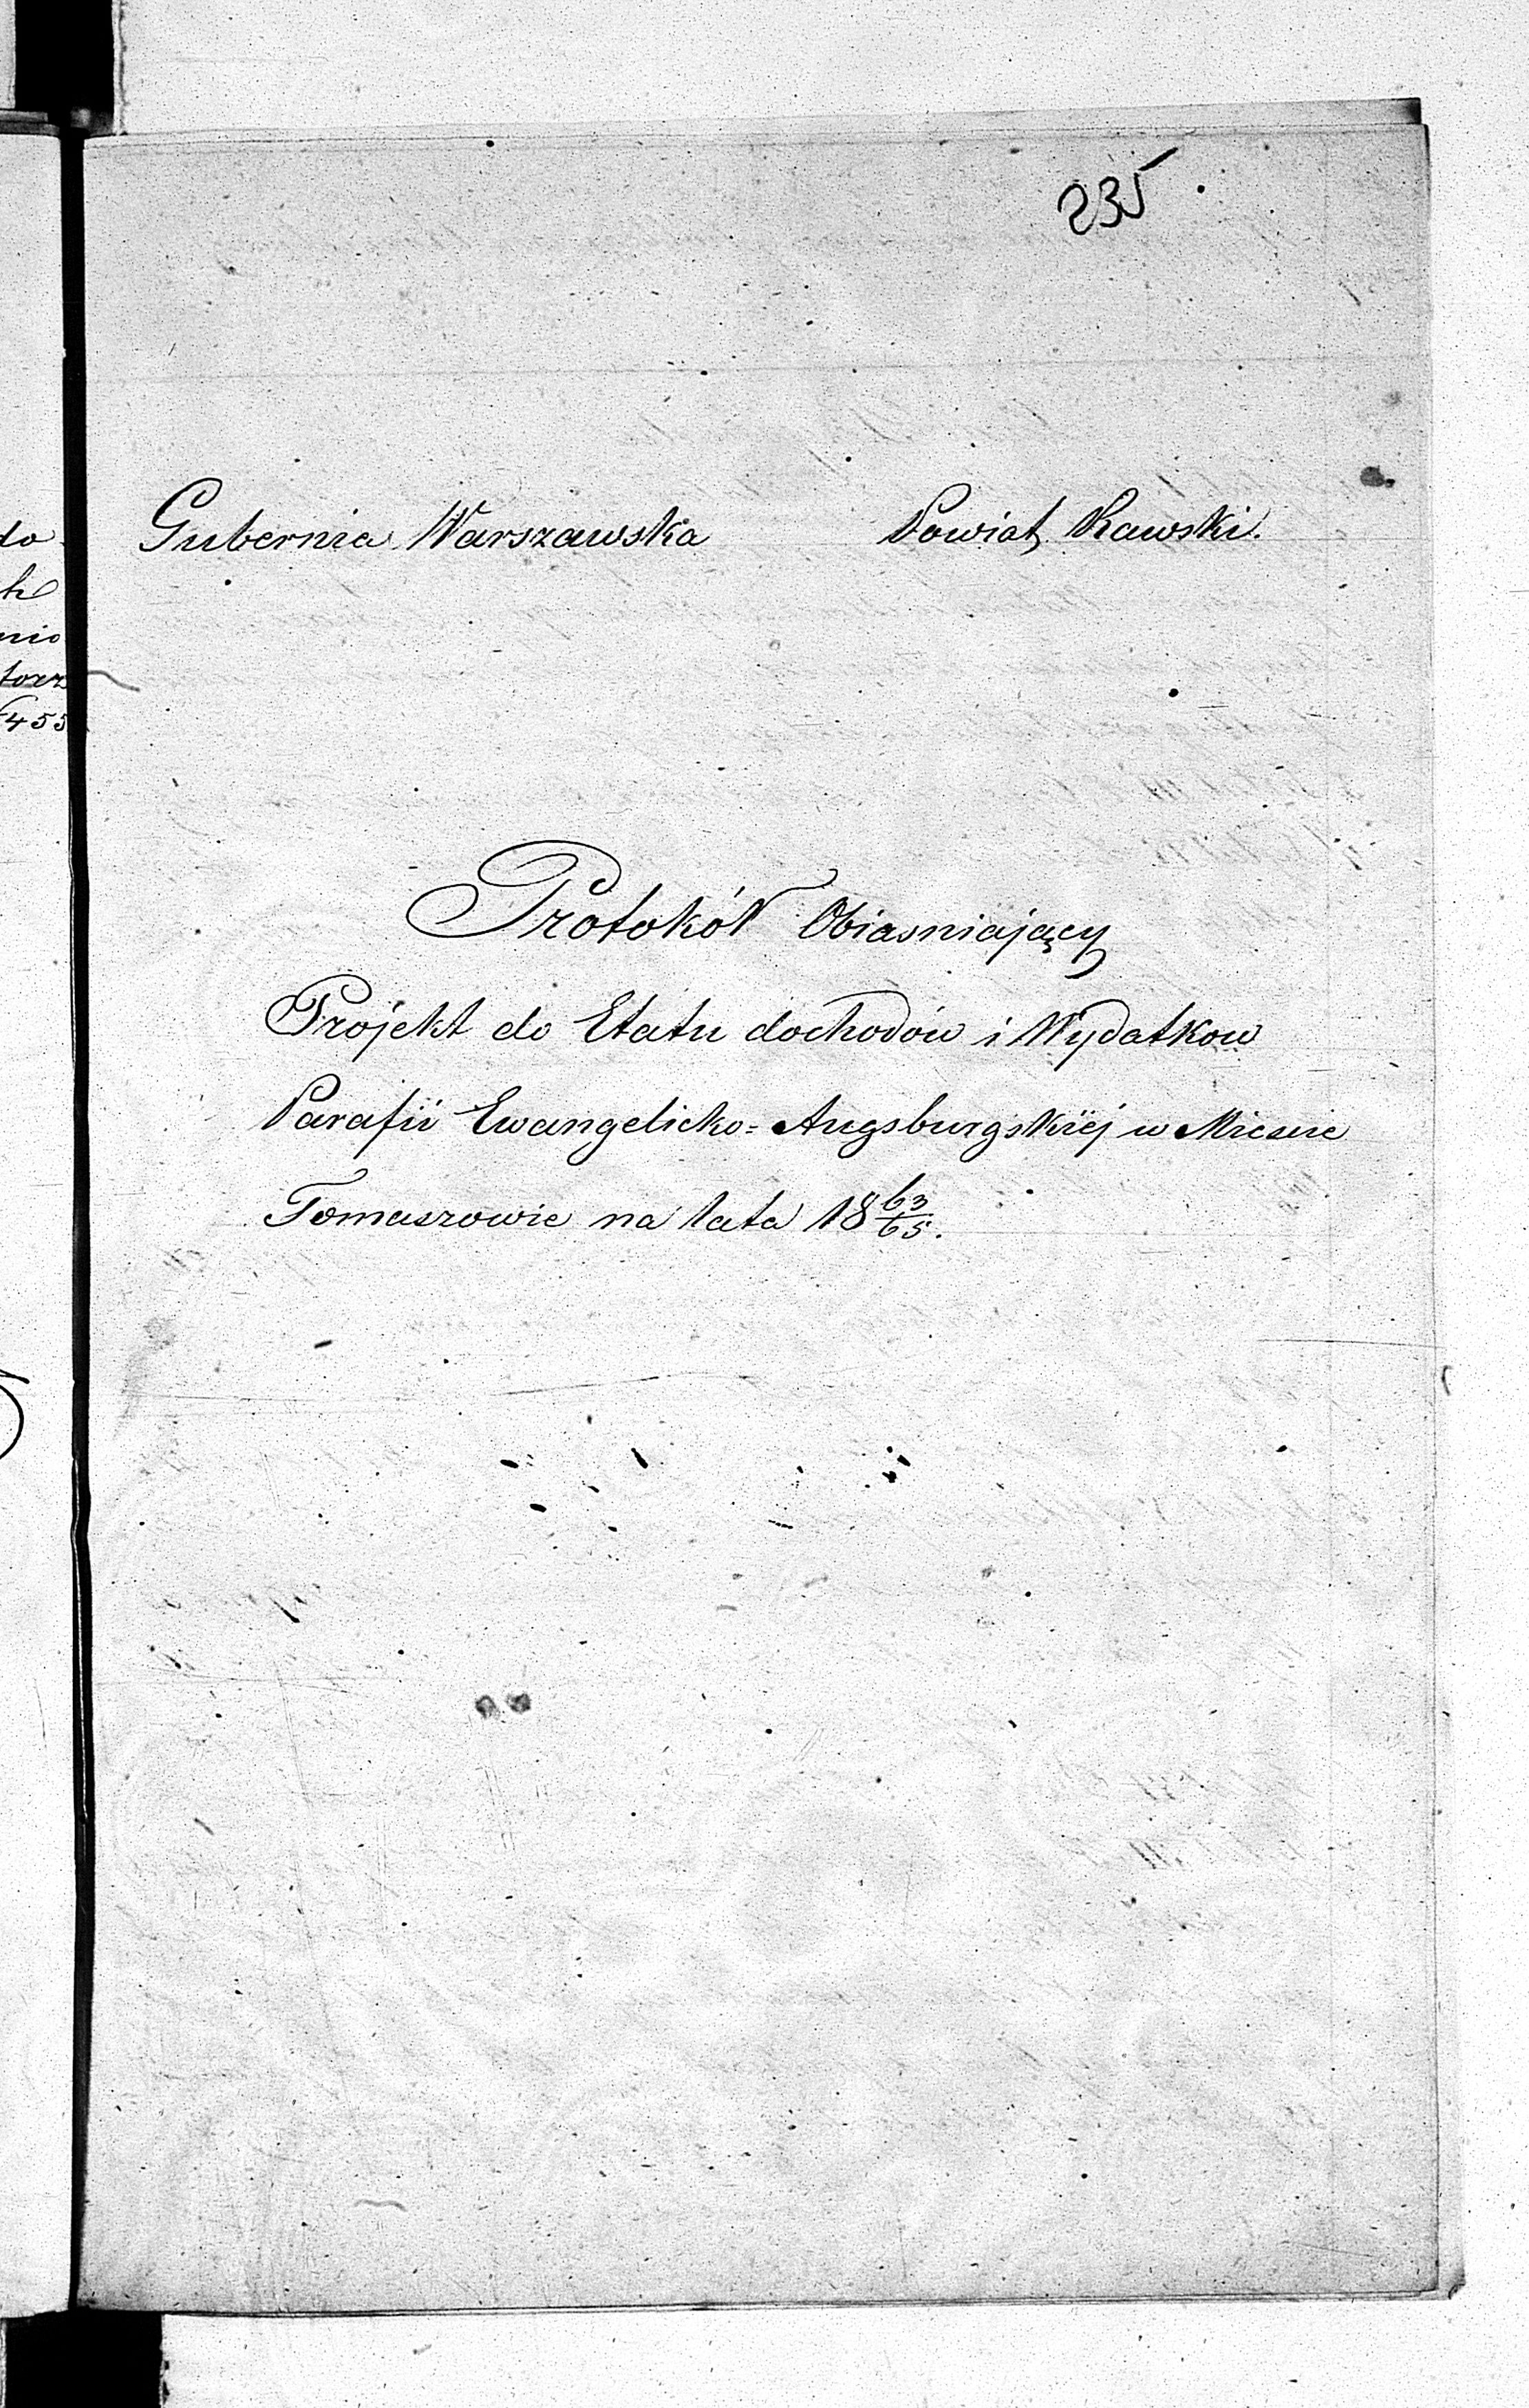 235.
Gubernia Warszawska Powiat Rawski.
Protokół Obiasniający
Projekt do Etatu dochodów i Wydatkow
Parafii Ewangelicko=Augsburgskiéj w Miescie
Tomaszowie na lata 18 63/65.
do
h
nio
torz
455